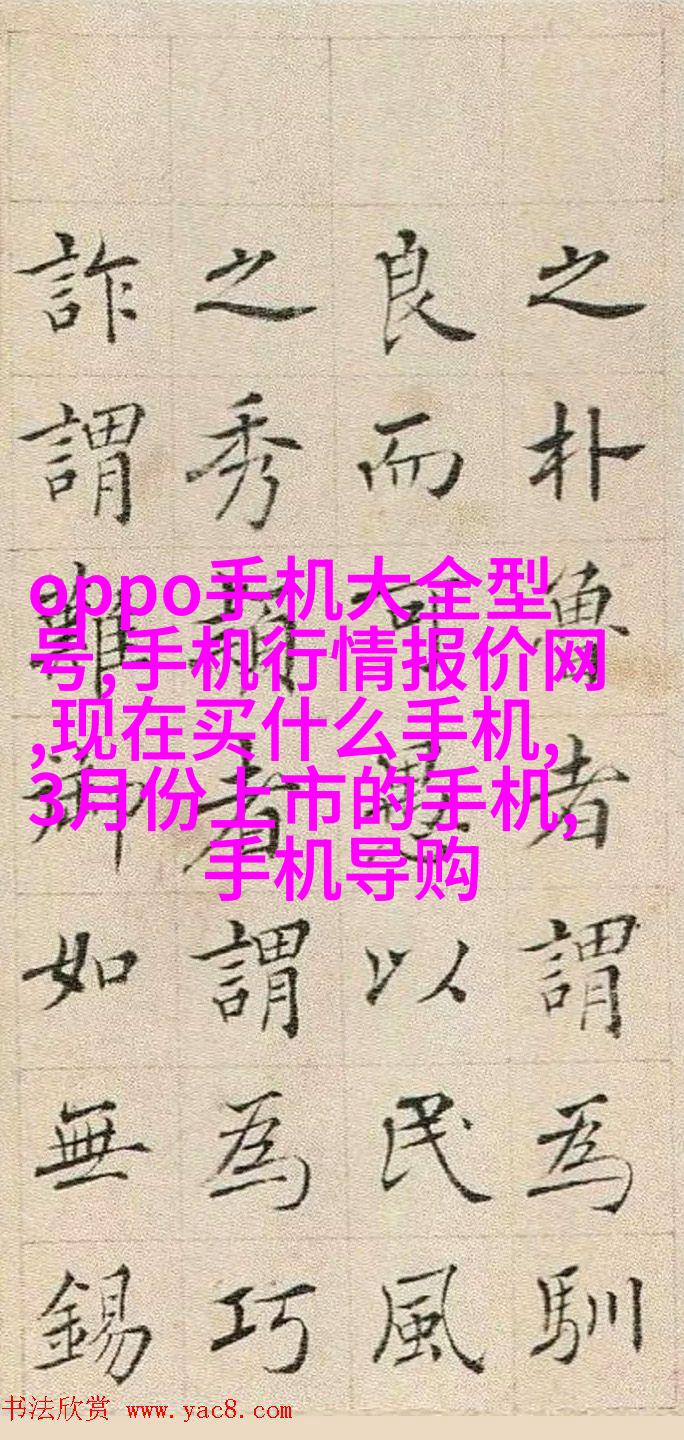 之朴魯者謂為馴
良而可愚以民風
之秀者謂為巧
詐謂難御如無錫
oppo手机大全型
号,手机行情报价网
,现在买什么手机,
3月份上市的手机,
手机导购
书法欣赏 www.yac8.com